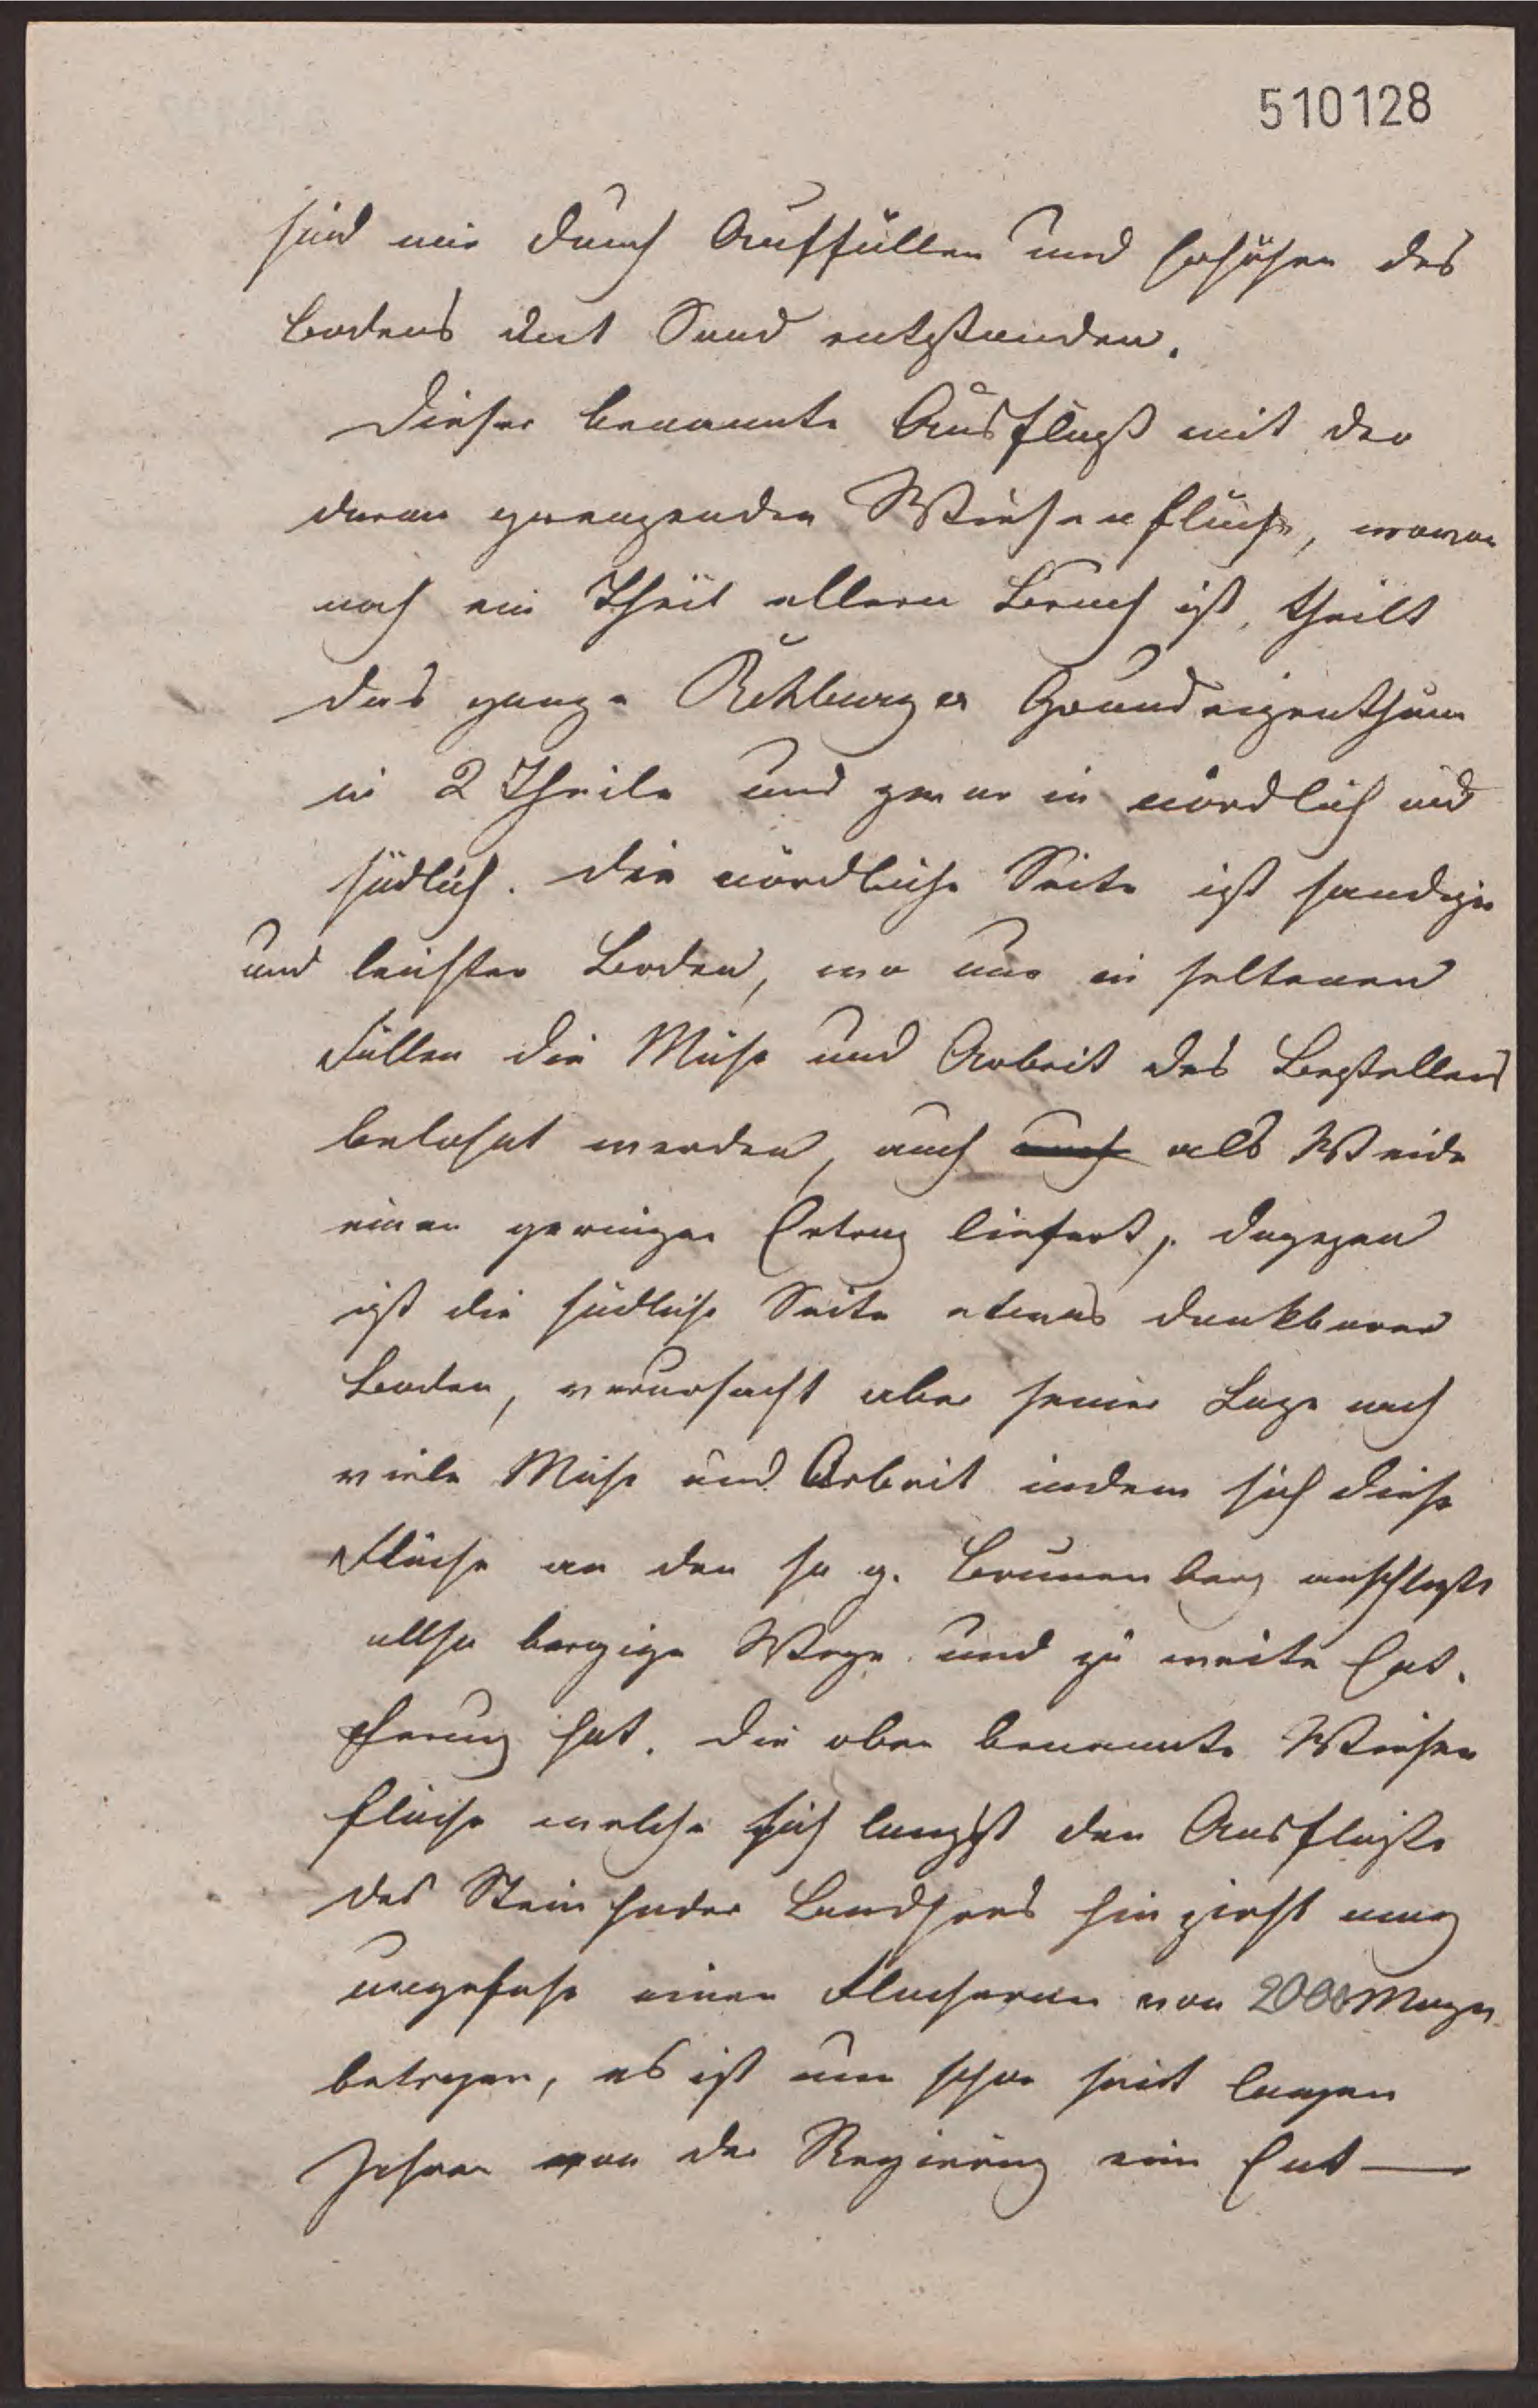 510128
sind nur durch Auffüllen und Erhöhen des
Bodens dut Sand entstanden.
Dieser benannte Ausfluß mit der
daran grenzenden Wiesenfläche, wovon
noch ein Theil ellern Bruch ist, theilt
das ganze Rehburger Grundeigenthum
in 2 Theile und zwar in nördlich und
südlich. Die nördliche Seite ist sandiger
und leichter Boden, wo nur in seltenen
Fällen die Mühe und Arbeit des Bestellens
belohnt werden, auch auch als Weide
einen geringen Ertrag liefert, dagegen
ist die südliche Seite etwas dankbarer
Boden, verursacht aber seiner Lage nach
viele Mühe und Arbeit indem sich diese
Fläche an den so g. Brunnenberg anschließt
allso bergige Wege und zu weite Ent.
fernung hat. Die oben benannte Wiesen
fläche welche sich langst den Ausfluße
des Steinhuder Landsees hin zieht mag
ungefahr einen Flächeraum von 2000 Morgen
betragen, es ist nun schon seit langen
Jahren von der Regierung eine Ent—